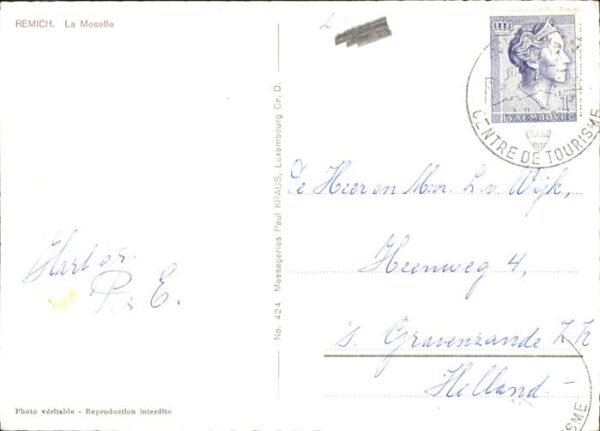 REMICH. La Moselle
1F
LUXEMBOURG
CENTRE DE TOURISME
De Heer en Mvr. L. v. Wijk,
Heenweg 4,
's Gravenzande Z.H
Holland-
Hart. gr.
P. & E.
No. 424 Messageries Paul KRAUS, Luxembourg Gr. D.
Photo véritable - Reproduction interdite
ISME